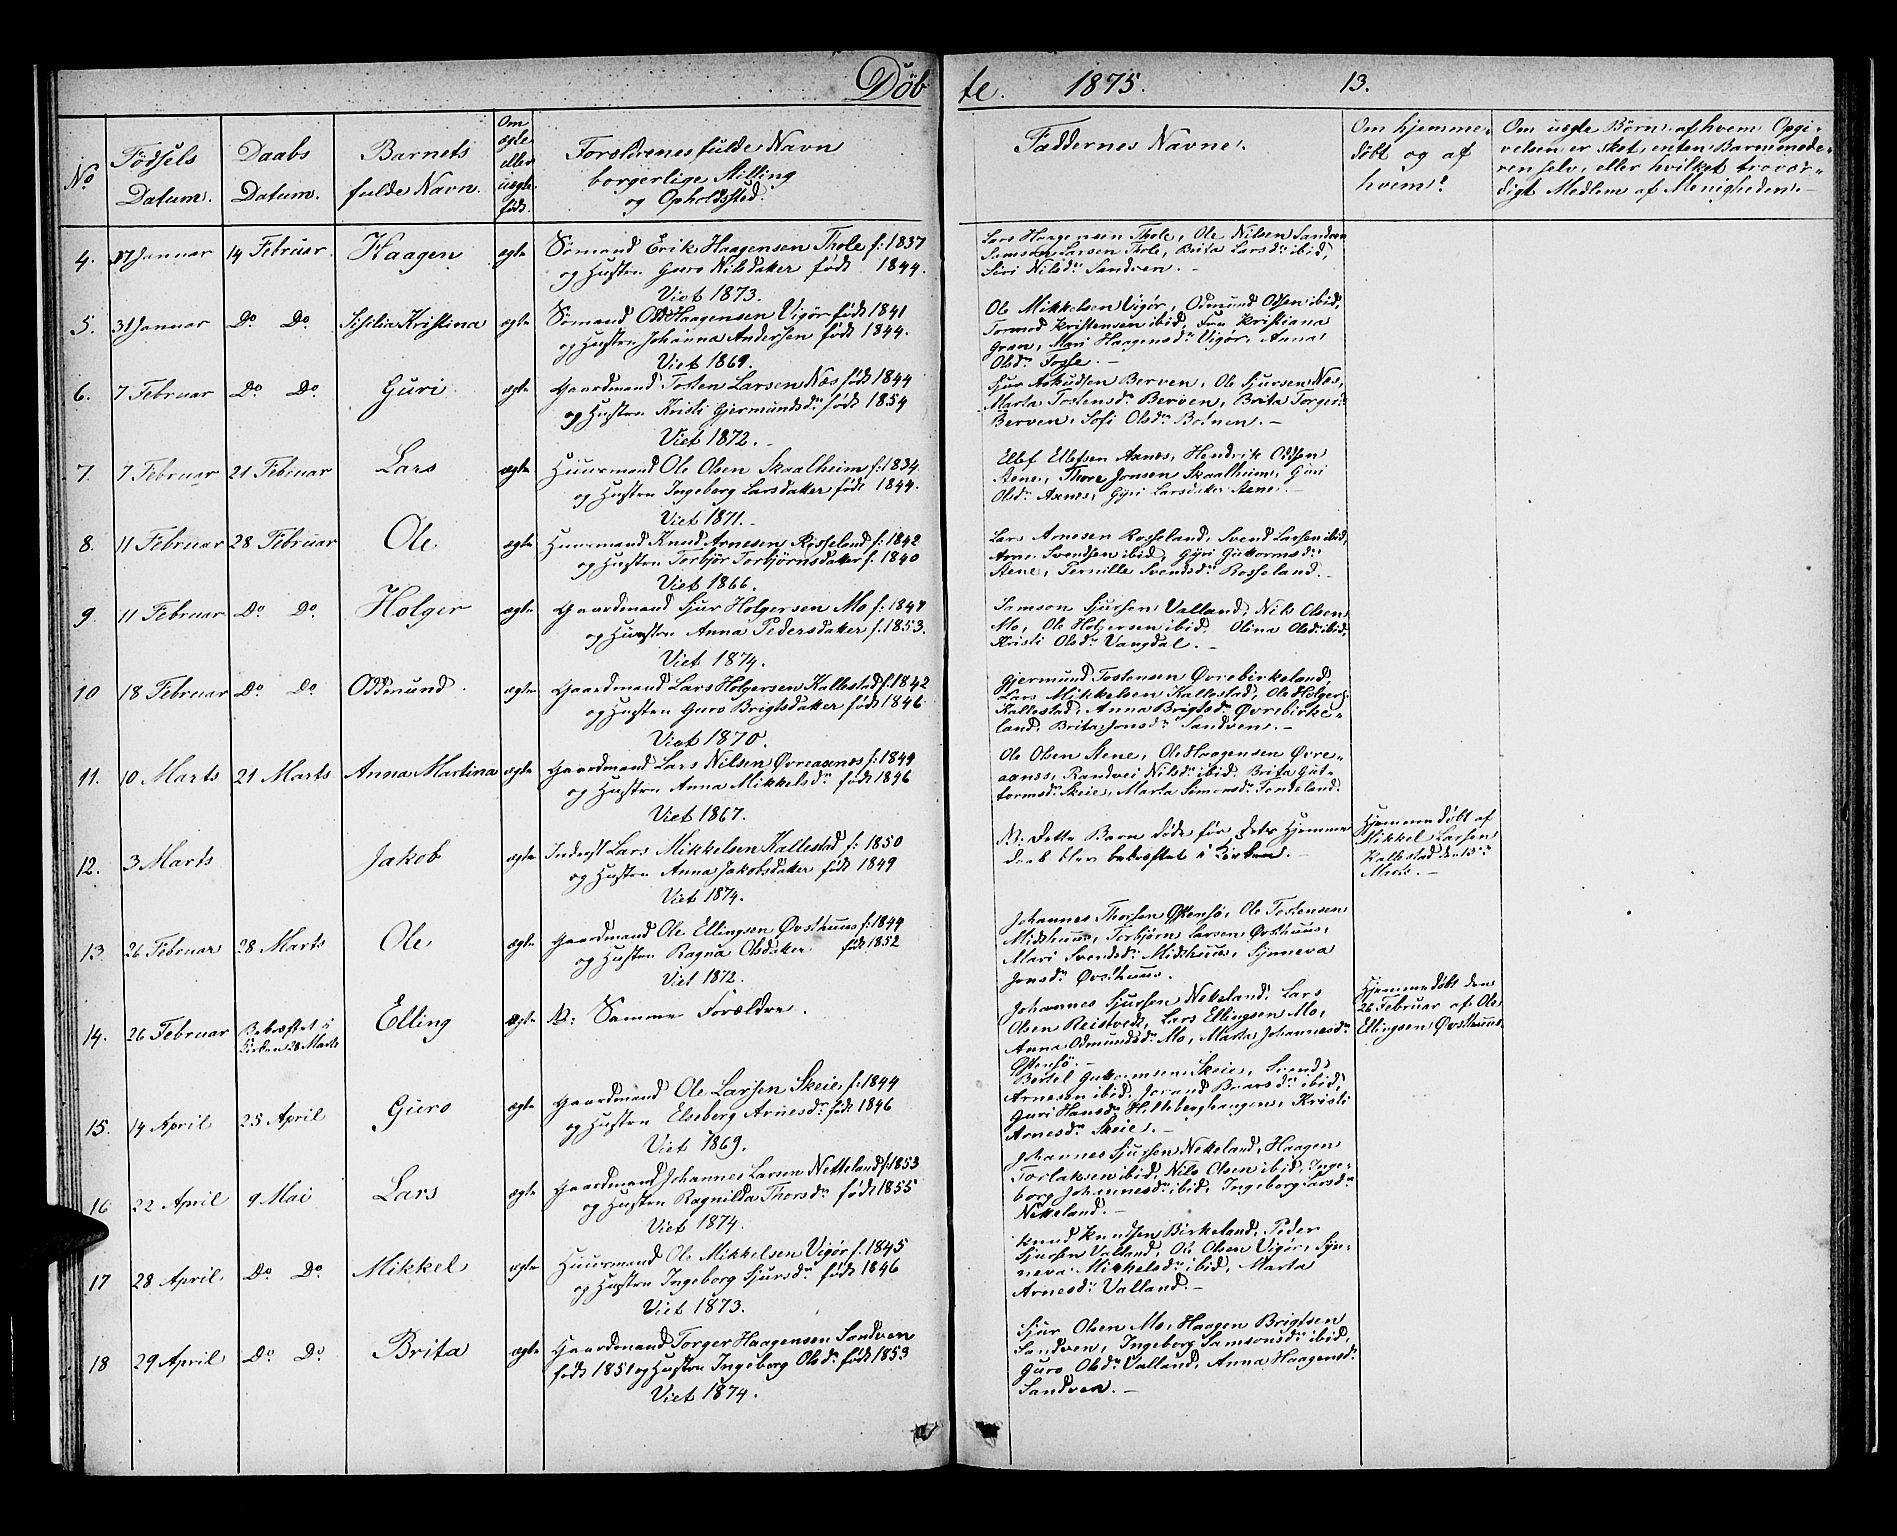 Døb
te. 1875. 13.
No
Fødsels
Datum.
Daabs
Datum.
Barnets
fulde Navn.
Om
ægte
eller
uægte
født.
Forældrenes fulde Navn
borgerlige Stilling
og Opholdssted.
Faddernes Navne.
Om hjemme-
døbt og af
hvem?
Om uægte Børn, af hvem Opgi-
velsen er sket, enten Barnemode-
ren selv, eller hvilket trovær-
digt Medlem af Menigheden.
4. 27 Januar 14 Februar Haagen ægte Sømand Erik Haagensen Thole f: 1837
og Hustru Guro Nilsdatter født 1844.
Viet 1873.
Lars Haagensen Thole, Ole Nilsen Sandven
Samson Larsen Thole, Brita Larsdr ibid,
Siri Nilsdr Sandven.
5. 31 Januar Do Do Sisilia Kristina ægte Sømand Odd Haagensen Vigør født 1841
og Hustru Johanna Andersen født 1844.
Viet 1869.
Ole Mikkelsen Vigør, Odmund Odsen ibid,
Tormod Kristensen ibid, Fru Kristiana
Gran, Mari Haagensdr Vigør, Anna
Olsdr Fosse.
6. 7 Februar Do Do Guri ægte Gaardmand Tosten Larsen Næs født 1844
og Hustru Kristi Germundsdr født 1854
Viet 1872.
Sjur Berven, Ole Sjursen Næs,
Marta Tostensdr Berven, Brita Torgersdr
Berven, Sofi Olsdr
7. 7 Februar 21 Februar Lars ægte Huusmand Ole Olsen Skaalheim f: 1834
og Hustru Ingeborg Larsdatter født 1844.
Viet 1871.
Ellef Ellefsen Axnes, Hendrik Odsen
Stene, Thore Jonsen Skaalheim, Guri
Olsdr Axnes, Gyri Larsdatter Stene.
8. 11 Februar 28 Februar Ole ægte Huusmand Knud Arnesen Rosseland f: 1842
og Hustru Torbjør Torbjørnsdatter f. 1840
Viet 1866.
Lars Arnesen Rosseland, Svend Larsen ibid,
Arne Svendsen ibid, Gyri Guttormsdr
Stene, Pernille Svendsdr Rosseland.
9. 11 Februar Do Do Holger ægte Gaardmand Sjur Holgersen Mo f: 1847
og Hustru Anna Pedersdatter f. 1853.
Viet 1874.
Samson Sjursen Valland, Nils Olsen
Mo, Ole Holgersen ibid, Olina Olsdr ibid,
Kristi Olsdr Vangdal.
10 18 Februar Do Do Oddmund. ægte Gaardmand Lars Holgersen Kallestad f. 1842
og Hustru Guro Brigtsdatter født 1846
Viet 1870.
Gjermund Tostensen Øvrebirkeland,
Lars Mikkelsen Kallestad, Ole Holgers.
Kallestad, Anna Brigtsdr Øvrebirke-
land, Brita Jonsdr Sandven.
11. 10 Marts 21 Marts Anna Martina ægte Gaardmand Lars Nilsen Øvreaxnes f: 1844
og Hustru Anna Mikkelsdr født 1846
Viet 1867.
Ole Olsen Stene, Ole Haagensen Øvre-
axnes, Randvei Nilsdr ibid, Brita Gut-
tormsdr Skeie, Marta Simonsdr Tondeland.
12. 3 Marts Jakob ægte Inderst Lars Mikkelsen Kallestad f: 1850
og Hustru Anna Jakobsdatter født 1849
Viet 1874.
NB: Dette Barn døde før dets Hjemme
daab blev bekræftet i Kirken.
Hjemmedøbt af
Mikkel Larsen
Kallestad den 13de
Marts.
13. 26 Februar 28 Marts Ole ægte Gaardmand Ole Ellingsen Øvsthuus f: 1844
og Hustru Ragna Olsdatter født 1852
Viet 1872.
Johannes Thorsen Østensø, Ole Tostensen
Midthuus, Torbjørn Larsen Øvsthuus,
Mari Svendsdr Midthuus, Synneva
Jonsdr Øvsthuus.
14. 26 Februar Bekræftet i
Kirken 28 Marts Elling ægte NB: Samme Forældre.
Johannes Sjursen Netteland, Lars
Olsen Reistvedt, Lars Ellingsen Mo,
Anna Odmundsdr Mo, Marta Johannesdr
Østensø.
Hjemmedøbt den
26 Februar af Ole
Ellingsen Øvsthuus.
15. 14 April 25 April Guro ægte Gaardmand Ole Larsen Skeie f: 1844
og Hustru Elseberg Arnesdr født 1846
Viet 1869.
Bertel Guttormsen Skeie, Svend
Arnesen ibid, Jorand Baarsdr ibid,
Guri Hansdr Kristi
Arnesdr Skeie.
16 22 April 9 Mai Lars ægte Gaardmand Johannes Larsen Netteland f: 1853
og Hustru Ragnilda Thorsdr født 1855
Viet 1874.
Johannes Sjursen Netteland, Haagen
Torlaksen ibid, Nils Olsen ibid, Inge-
borg Johannesdr ibid, Ingeborg Larsdr
Netteland.
17 28 April Do Do Mikkel ægte Huusmand Ole Mikkelsen Vigør f: 1845
og Hustru Ingeborg Sjursdr født 1846
Viet 1873.
Knud Knudsen Birkeland, Peder
Sjursen Valland, Ole Olsen Vigør, Syn-
neva Mikkelsdr ibid, Marta
Arnesdr Valland.
18 29 April Do Do Brita ægte Gaardmand Torger Haagensen Sandven
født 1851 og Hustru Ingeborg Olsdr født 1853
Viet 1874.
Sjur Olsen Mo, Haagen Brigtsen
Sandven, Ingeborg Samsonsdr ibid,
Guro Olsdr Valland, Anna Haagensdr
Sandven.